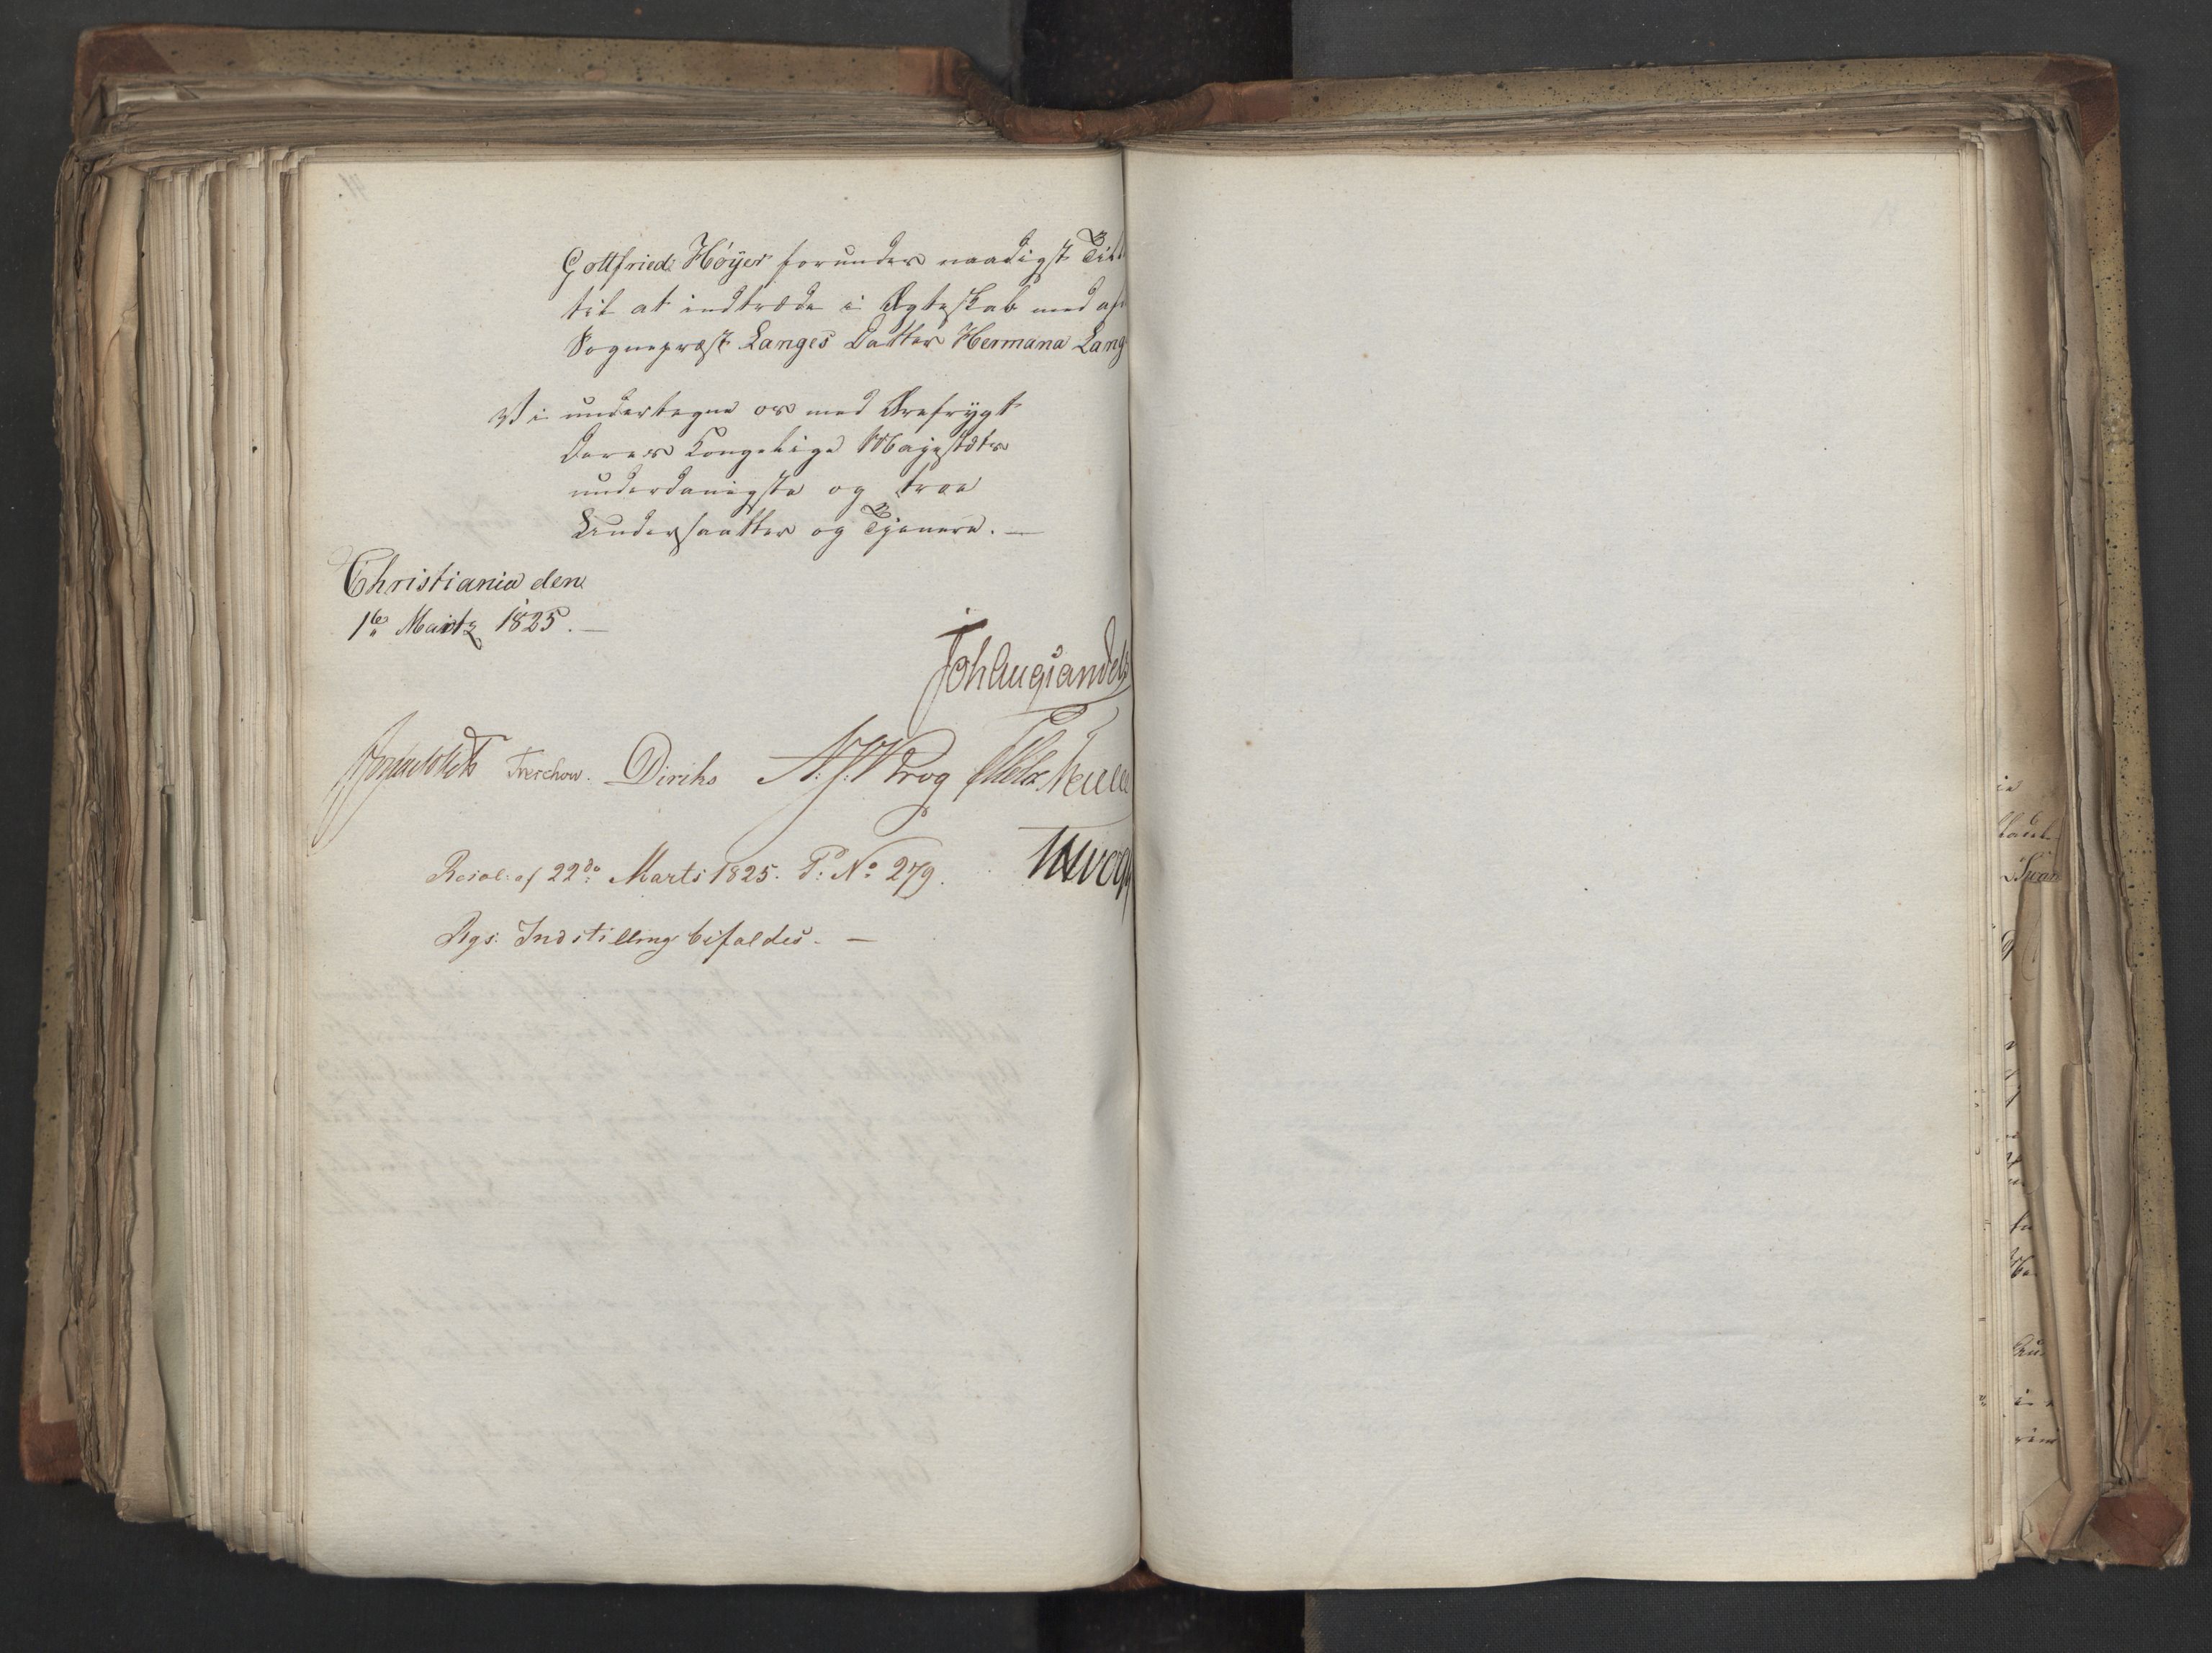 Gottfried Höyer forundes naadigst Till
til at indtræde i Ægteskab med af
Sognepræst Langes Datter Hermana Lang
Vi undertegne os med Ærefrygt
Deres Kongelige Majestæts
underdanigste og troe
Undersaatter og Tjenere. —
Christiania den
1te Martz 1825. —
Joh Aug Sandels
Treschow. Diriks A: J: Krog
Resol: af 22de Marts 1825. P: No 279.
Rgs: Indstilling bifaldes. —